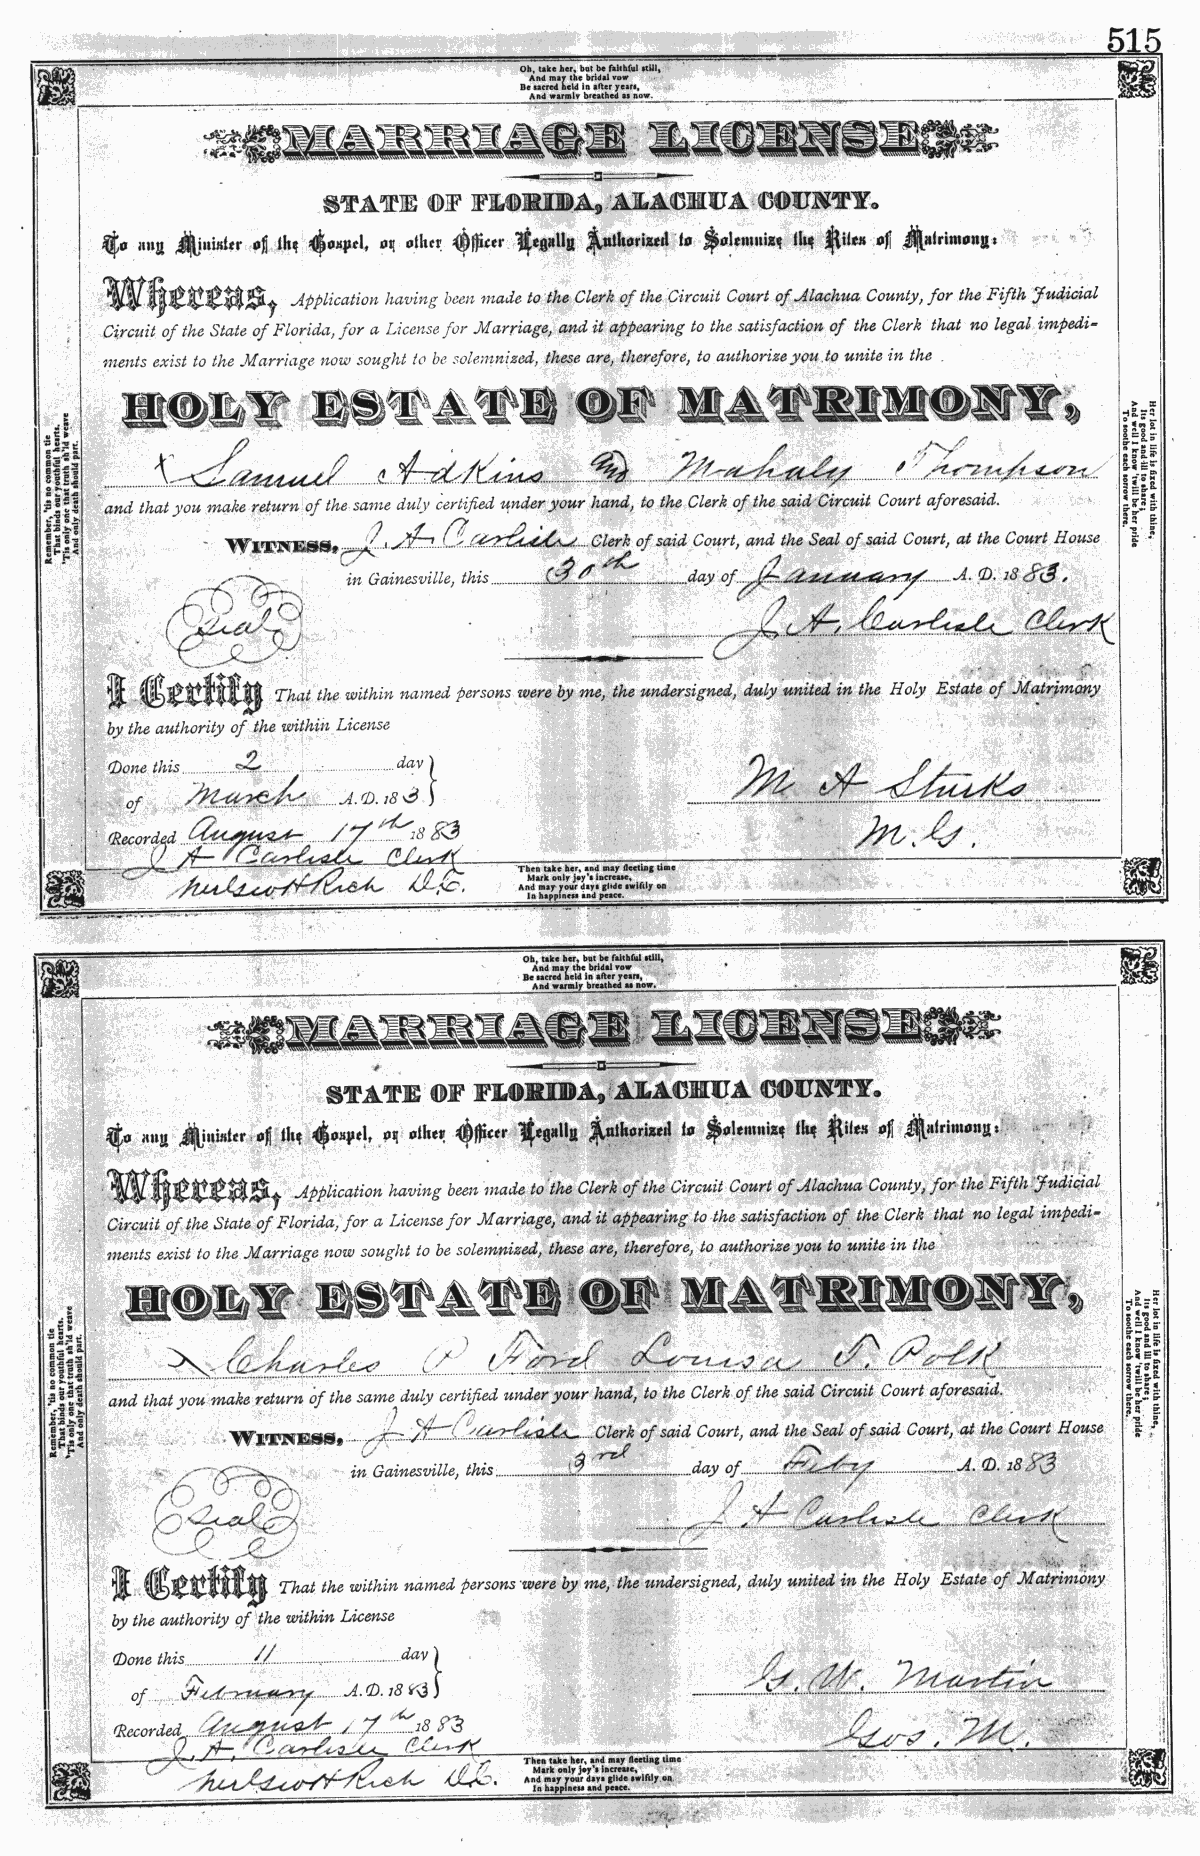 515
Oh, take her, but be faithful still,
And may the bridal vow
Be sacred held in after years,
And warmly breathed as now.
MARRIAGE LICENSE
STATE OF FLORIDA, ALACHUA COUNTY.
To any Minister of the Gospel, or other Officer Legally Authorized to Solemnize the Rites of Matrimony:
Whereas, Application having been made to the Clerk of the Circuit Court of Alachua County, for the Fifth Judicial
Circuit of the State of Florida, for a License for Marriage, and it appearing to the satisfaction of the Clerk that no legal impedi-
ments exist to the Marriage now sought to be solemnized, these are, therefore, to authorize you to unite in the
HOLY ESTATE OF MATRIMONY,
Remember, 'tis no common tie
That binds our youthful hearts,
'Tis only one that truth sh'ld weave
And only death should part.
Her lot in life is fixed with thine,
Its good and ill to share;
And well I know 'twill be her pride
To soothe each sorrow there.
x Samuel Adkins and Mahaly Thompson
and that you make return of the same duly certified under your hand, to the Clerk of the said Circuit Court aforesaid.
WITNESS, J. A. Carlisle Clerk of said Court, and the Seal of said Court, at the Court House
in Gainesville, this 30th day of January A. D. 1883.
Seal
J. A. Carlisle Clerk
I Certify That the within named persons were by me, the undersigned, duly united in the Holy Estate of Matrimony
by the authority of the within License
Done this 2 day
of March A. D. 183
M A Sturks
Recorded August 17th 1883
M. G.
J A Carlisle Clerk
Rich D.C.
Then take her, and may fleeting time
Mark only joy's increase,
And may your days glide swiftly on
In happiness and peace.
Oh, take her, but be faithful still,
And may the bridal vow
Be sacred held in after years,
And warmly breathed as now.
MARRIAGE LICENSE
STATE OF FLORIDA, ALACHUA COUNTY.
To any Minister of the Gospel, or other Officer Legally Authorized to Solemnize the Rites of Matrimony:
Whereas, Application having been made to the Clerk of the Circuit Court of Alachua County, for the Fifth Judicial
Circuit of the State of Florida, for a License for Marriage, and it appearing to the satisfaction of the Clerk that no legal impedi-
ments exist to the Marriage now sought to be solemnized, these are, therefore, to authorize you to unite in the
HOLY ESTATE OF MATRIMONY,
Remember, 'tis no common tie
That binds our youthful hearts.
'Tis only one that truth sh'ld weave
And only death should part.
Her lot in life is fixed with thine,
Its good and ill to share;
And well I know 'twill be her pride
To soothe each sorrow there.
x Charles P Ford Louisa T. Polk
and that you make return of the same duly certified under your hand, to the Clerk of the said Circuit Court aforesaid.
WITNESS, J A Carlisle Clerk of said Court, and the Seal of said Court, at the Court House
in Gainesville, this 3rd day of Feby A. D. 1883
Seal
J A Carlisle Clerk
I Certify That the within named persons were by me, the undersigned, duly united in the Holy Estate of Matrimony
by the authority of the within License
Done this 11 day
of February A. D. 1883
G. W. Martin
Recorded August 17th 1883
Gos. M.
J. A. Carlisle Clerk
Rich D.C.
Then take her, and may fleeting time
Mark only joy's increase,
And may your days glide swiftly on
In happiness and peace.